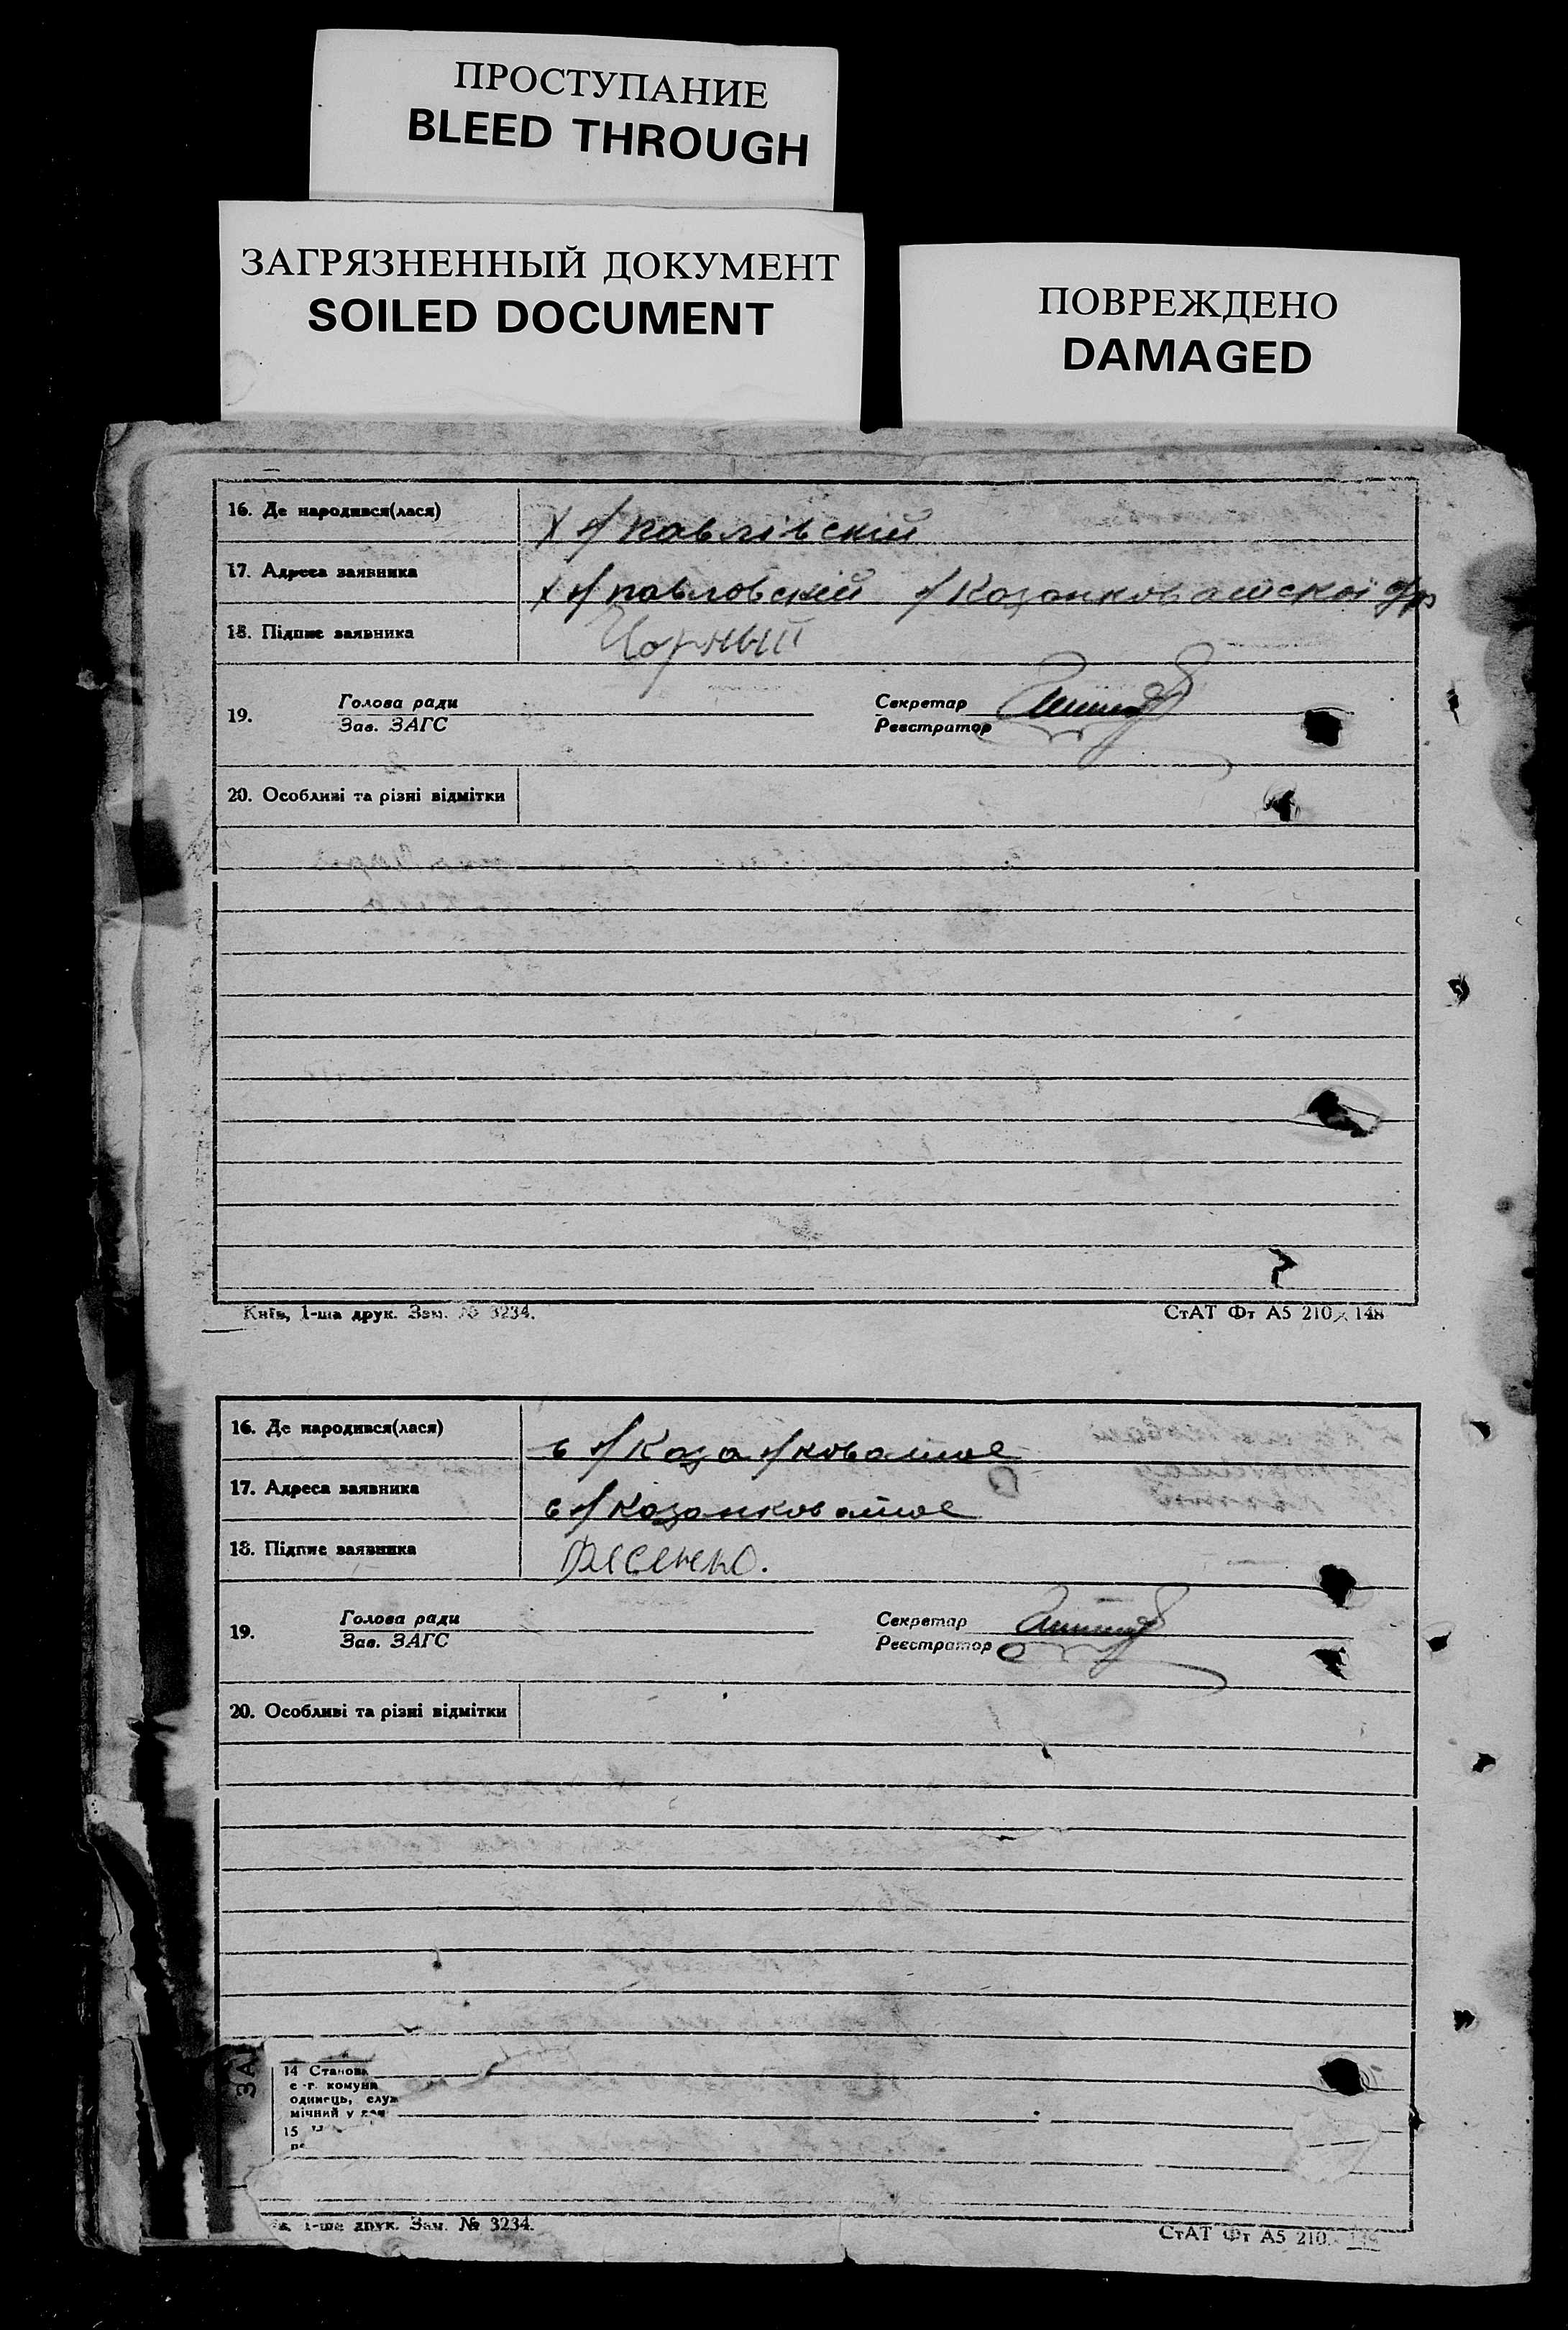 ПРОСТУПАНИЕ
BLEED THROUGH
ЗАГРЯЗНЕННЫЙ ДОКУМЕНТ
SOILED DOCUMENT
ПОВРЕЖДЕНО
DAMAGED
16. Де народився(лася) х н/павлівскій
17. Адреса заявника х н/павловскій н/Казанковатскої
18. Підпис заявника Чорный
19. Голова ради Секретар
Зав. ЗАГС Реєстратор
20. Особливі та різні відмітки
Київ, 1-ша друк. Зам. № 3234. СтАТ Фт А5 210 × 148
16. Де народився(лася) с н/Каза н/коватое
17. Адреса заявника с н/Казанковатое
18. Підпис заявника
19. Голова ради Секретар
Зав. ЗАГС Реєстратор
20. Особливі та різні відмітки
ЗА
14 Станов
с-г. комуна
одинець, служ
мічний у
15
1-ша друк. Зам. № 3234. СтАТ Фт А5 210